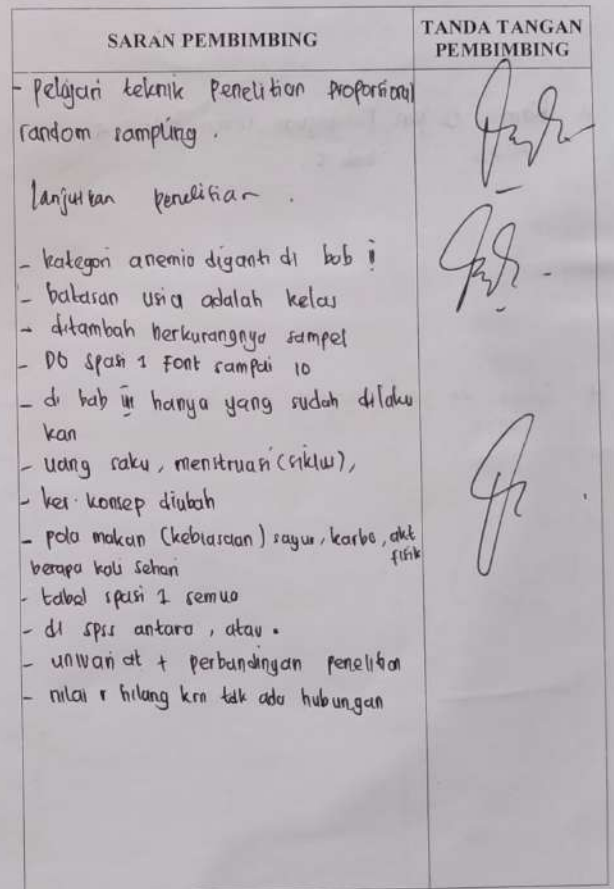 SARAN PEMBIMBING
TANDA TANGAN
PEMBIMBING
- Pelajari teknik Penelitian Proporsional
random sampling .
lanjutkan penelitian .
- kategori anemia diganti di bab ii
- batasan usia adalah kelas
- ditambah berkurangnya sampel
- DO Spasi 1 Font sampai 10
- di bab iii hanya yang sudah dilaku
kan
- uang saku, menstruasi (siklus),
- ker. konsep diubah
- pola makan (kebiasaan) sayur, karbo, akt
fisik
berapa kali sehari
- tabel spasi 1 semua
- di spss antara , atau .
- univariat + perbandingan penelitian
- nilai r hilang krn tdk ada hubungan